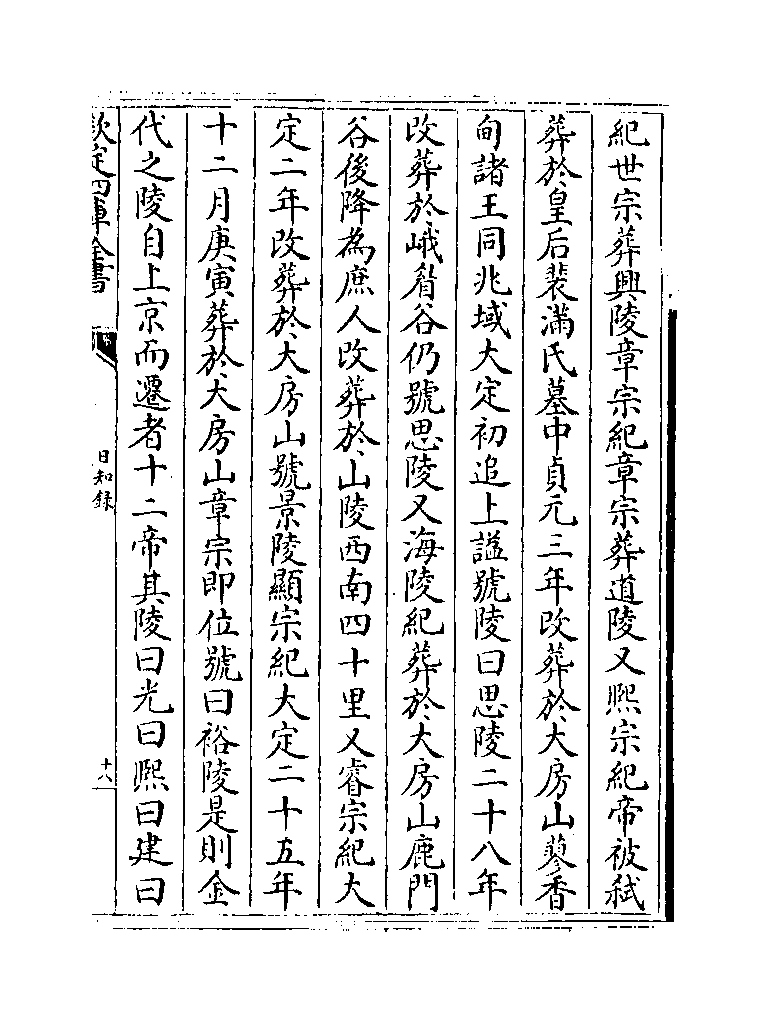 紀世宗葬興陵章宗紀章宗葬道陵又熙宗紀帝被弑
葬於皇后裴滿氏墓中貞元三年改葬於大房山蓼香
甸諸王同兆域大定初追上諡號陵曰思陵二十八年
改葬於峨眉谷仍號思陵又海陵紀葬於大房山鹿門
谷後降為庶人改葬於山陵西南四十里又睿宗紀大
定二年改葬於大房山號景陵顯宗紀大定二十五年
十二月庚寅葬於大房山章宗即位號曰裕陵是則金
代之陵自上京而遷者十二帝其陵曰光曰熙曰建曰
欽定四庫全書
日知錄
十八